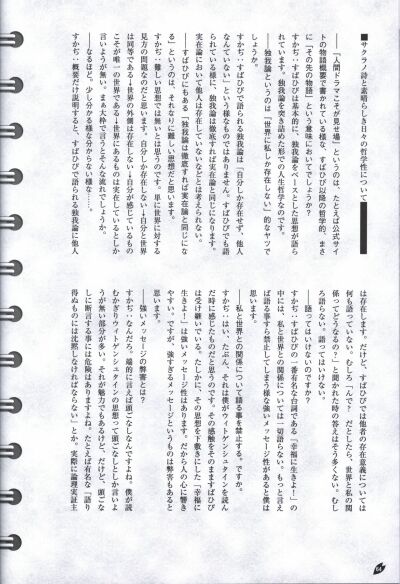 ■サクラノ詩と素晴らしき日々の哲学性について
――「人間ドラマこそが見せ場」というのは、たとえば公式サイ
トの物語概要で書かれている様な、すばひび以降の哲学的、まさ
に「その先の物語」という意味においてでしょうか？
すかぢ：すばひびは基本的に、独我論をベースとした思想が語ら
れています。独我論を突き詰めた形での人生哲学なのです。
――独我論というのは「世界に私しか存在しない」的なヤツで
しょうか。
すかぢ：すばひびで語られる独我論は「自分しか存在せず、他人
なんていない」という様なものではありません。すばひびでも語
られている様に、独我論は徹底すれば実在論と同じになります。
実在論において他人は存在していないなどとは考えられない。
すばひびにもある「独我論は徹底すれば実在論と同じにな
る」というのは、それなりに難しい思想だと思います。
すかぢ：難しい思想では無いとは思うのです。単に世界に対する
見方の問題なのだと思います。自分しか存在しない→自分と世界
は同等である→世界の外側は存在しない→自分が感じているもの
こそが唯一の世界である→世界にあるものは実在しているとしか
言いようが無い。まあ大枠で言うとそんな流れでしょうか。
――なるほど。少し分かる様な分からない様な……。
すかぢ：概要だけ説明すると、すばひびで語られる独我論に他人
は存在します。だけど、すばひびでは他者の存在意義については
何も語っていない。むしろ「んで？　だとしたら、世界と私の関
係ってどうなるの？」と聞かれた時の答えはそう多くない。むし
ろ語らない。語ってはいけない。
――語ってはいけないのですか？
すかぢ：すばひびの一番有名な台詞である「幸福に生きよ！」の
中には、私と世界との関係については一切語らない。もっと言え
ば語る事すら禁止してしまう様な強いメッセージ性があると僕は
思います。
――私と世界との関係について語る事を禁止する。ですか。
すかぢ：はい、たぶん、それは僕がウィトゲンシュタインを読ん
だ時に感じたものだと思うのです。その感触をそのまますばひび
は受け継いでいる。たしかに、その思想を下敷きにした「幸福に
生きよ！」は強いメッセージ性はあります。だから人の心に響き
やすい。ですが、強すぎるメッセージというものは弊害もあると
思います。
――強いメッセージの弊害とは？
すかぢ：なんだろ、端的に言えば頭ごなしなんですよね。僕が読
むかぎりウィトゲンシュタインの思想って頭ごなしとしか言いよ
うが無い部分が多い。それが魅力でもあるけど、だけど、頭ごな
しに断言する事には危険はありますよね。たとえば有名な「語り
得ぬものには沈黙しなければならない」とか。実際に論理実証主
54